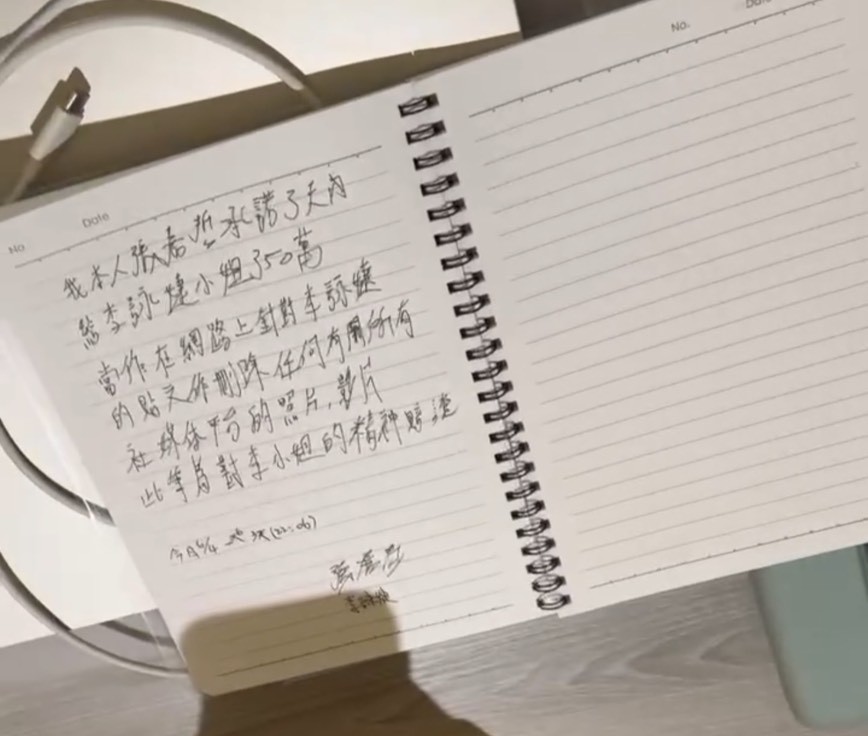 No
Date
我本人張君哲承諾了天內
給李詠婕小姐350萬
當作在網路上針對李詠婕
的貼文作刪除任何有關所有
社群平台的照片,影片
此筆為對李小姐的精神賠
今日 (22:06)
李詠婕
No.